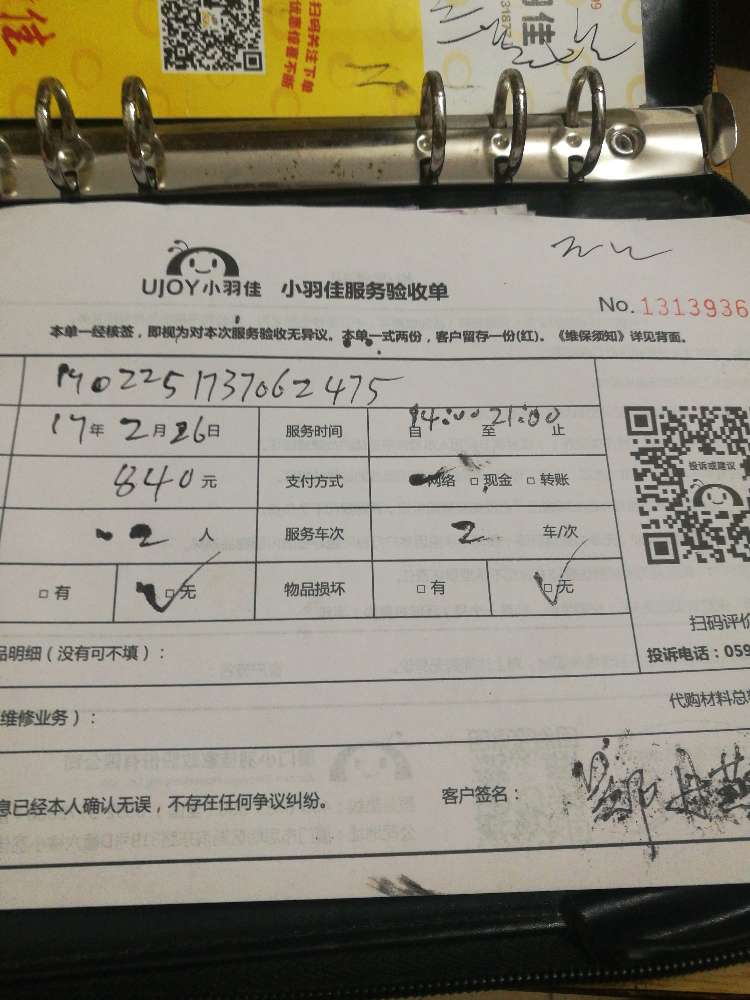 佳
扫码关注下单
优惠信息不断
UJOY小羽佳 小羽佳服务验收单
No. 1313936
本单一经核签，即视为对本次服务验收无异议。本单一式两份，客户留存一份(红)。《维保须知》详见背面。
M02251737062475
17年2月26日 服务时间 自14:00至21:00止
840元 支付方式 网络 □现金 □转账
投诉或建议
2人 服务车次 2 车/次
□有 □无 物品损坏 □有 □无
扫码评价
品明细（没有可不填）：
投诉电话：059
代购材料总
维修业务）：
息已经本人确认无误，不存在任何争议纠纷。 客户签名：